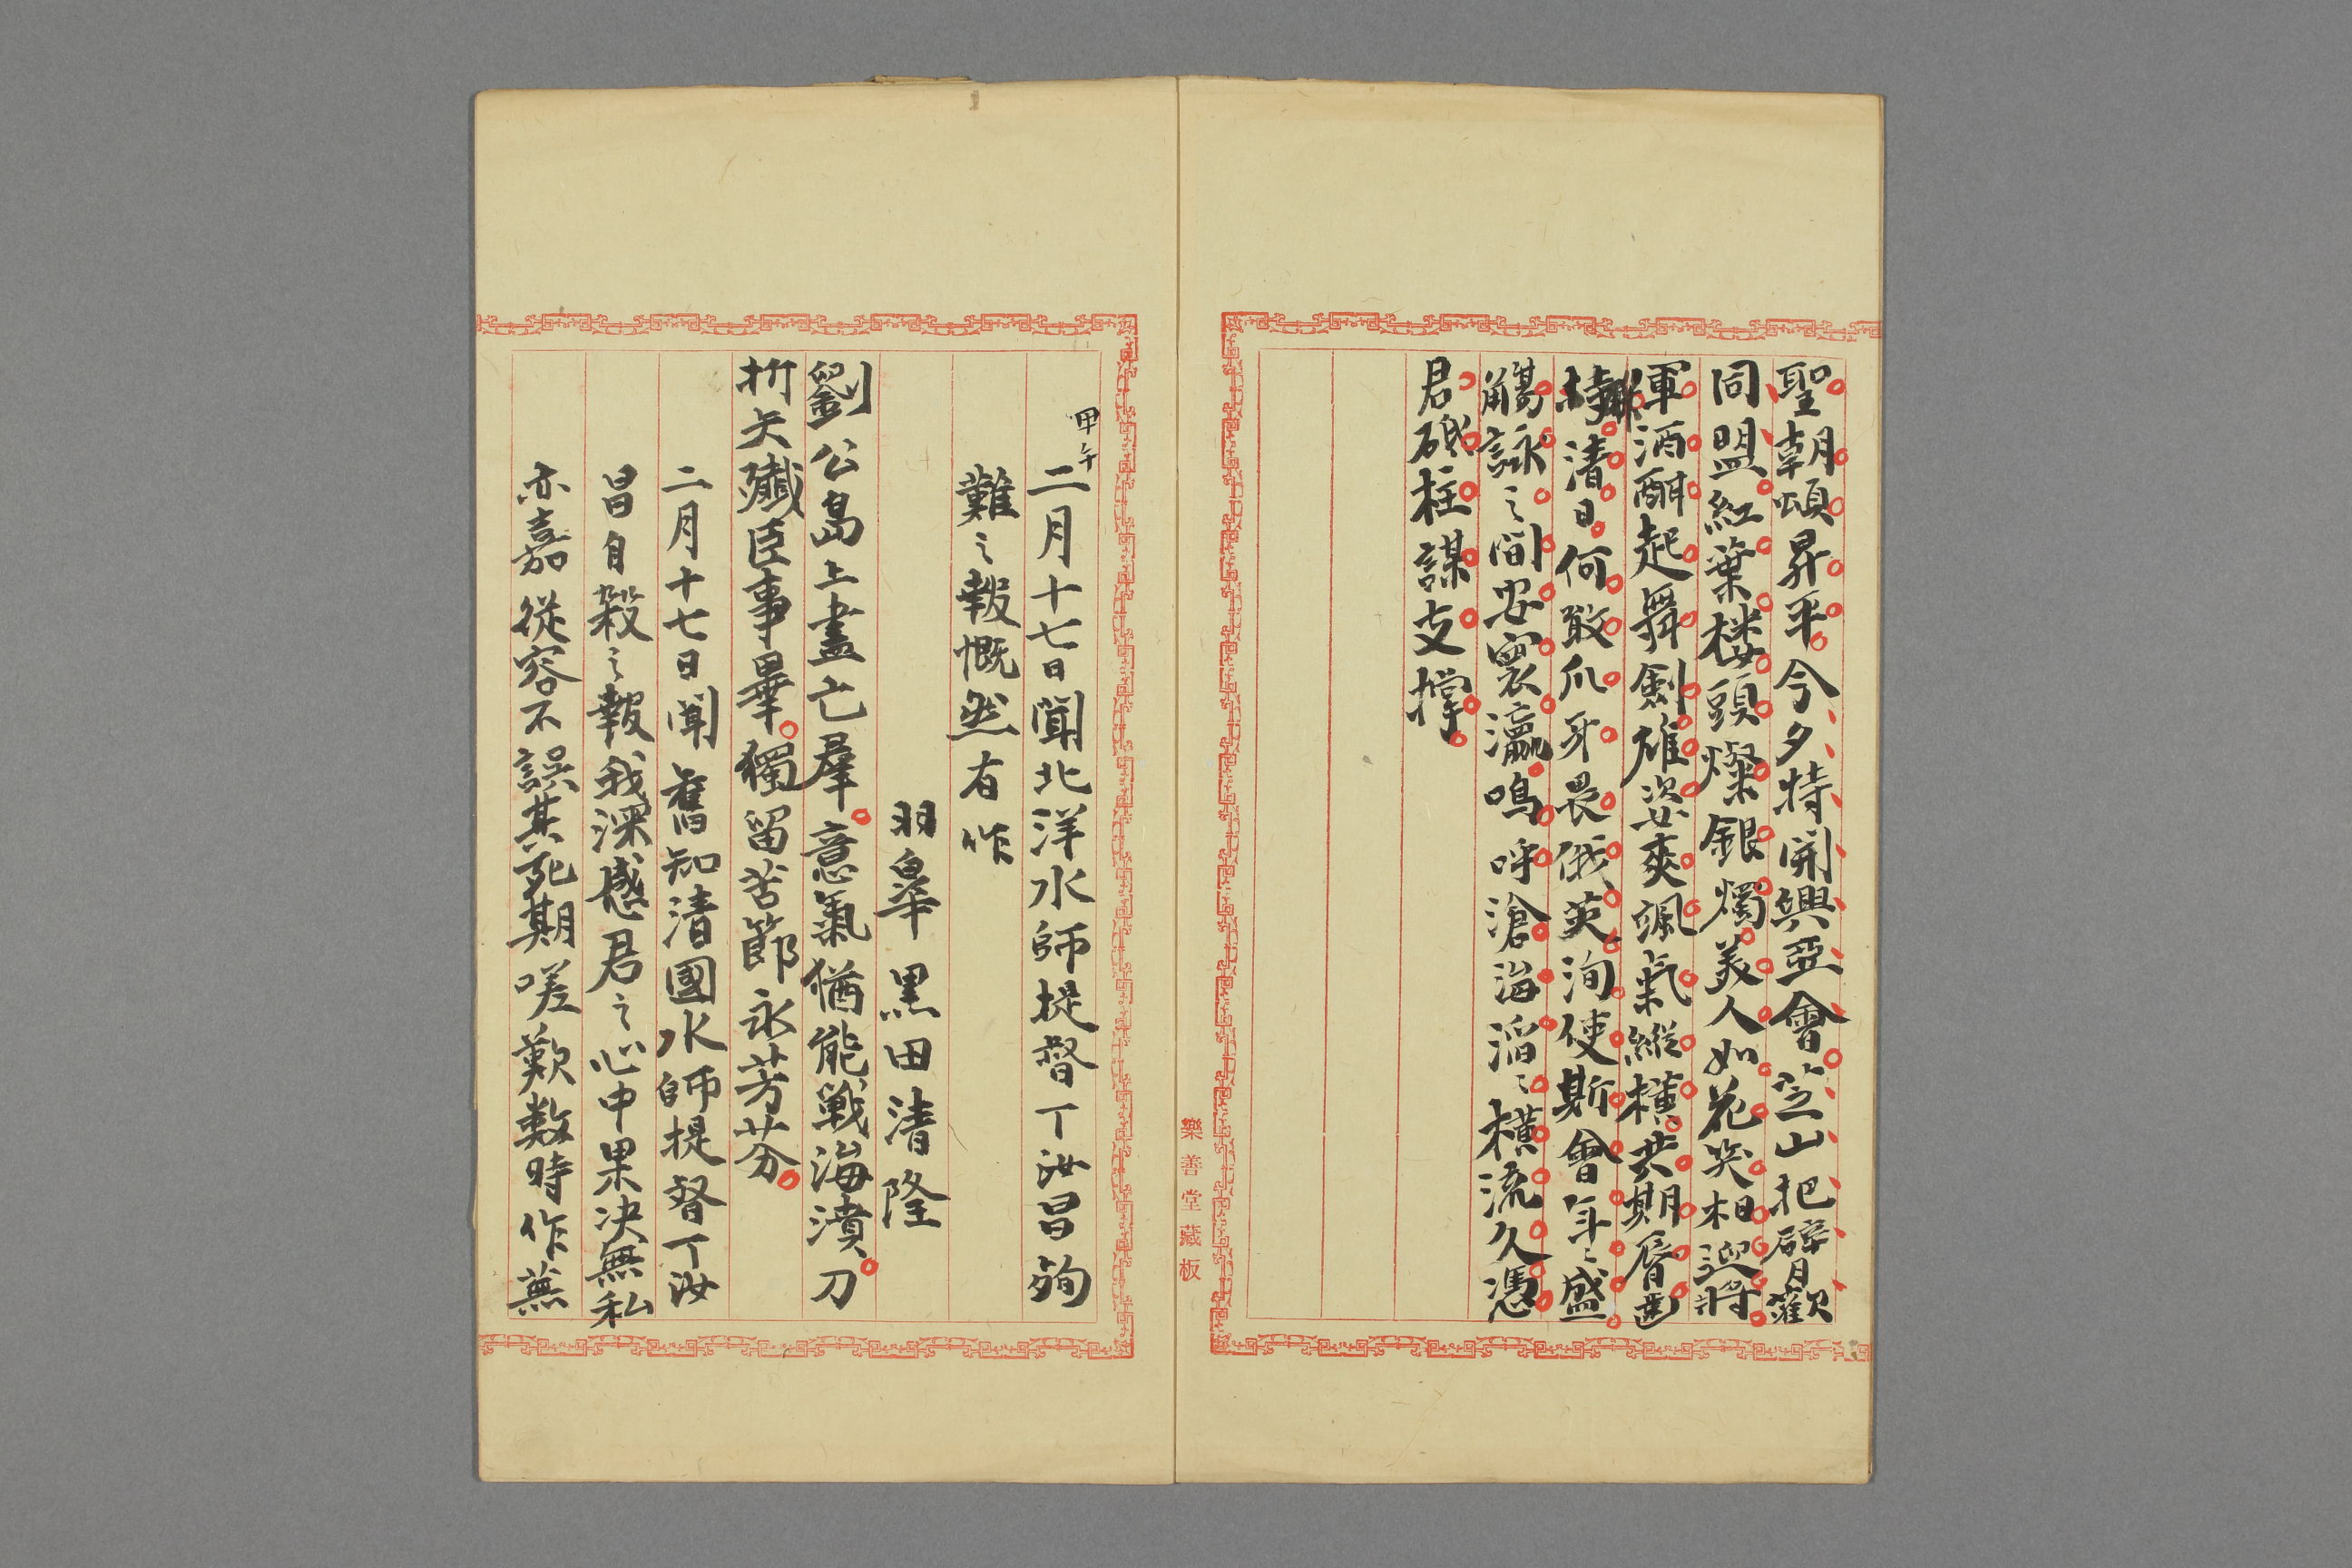 聖朝頌昇平今夕特開興亞會芝山把臂歡
同盟紅葉楼頭燦銀燭美人如花笑相迎將
軍酒酣起舞劍雄姿爽颯氣縱横共期脣齒
輔清日何敢爪牙畏俄英洵使斯會年〻盛
觴詠之間安寰瀛嗚呼滄海滔〻横流久憑
君砥柱謀支撐
樂善堂藏板
甲午
二月十七日聞北洋水師提督丁汝昌殉
難之報慨然有作
羽皐 黒田清隆
劉公島上盡亡羣意氣猶能戰海濆刀
折矢殲臣事畢獨留苦節永芳芬
二月十七日聞舊知清國水師提督丁汝
昌自殺之報我深感君之心中果决無私
亦嘉從容不誤其死期嗟歎数時作蕪